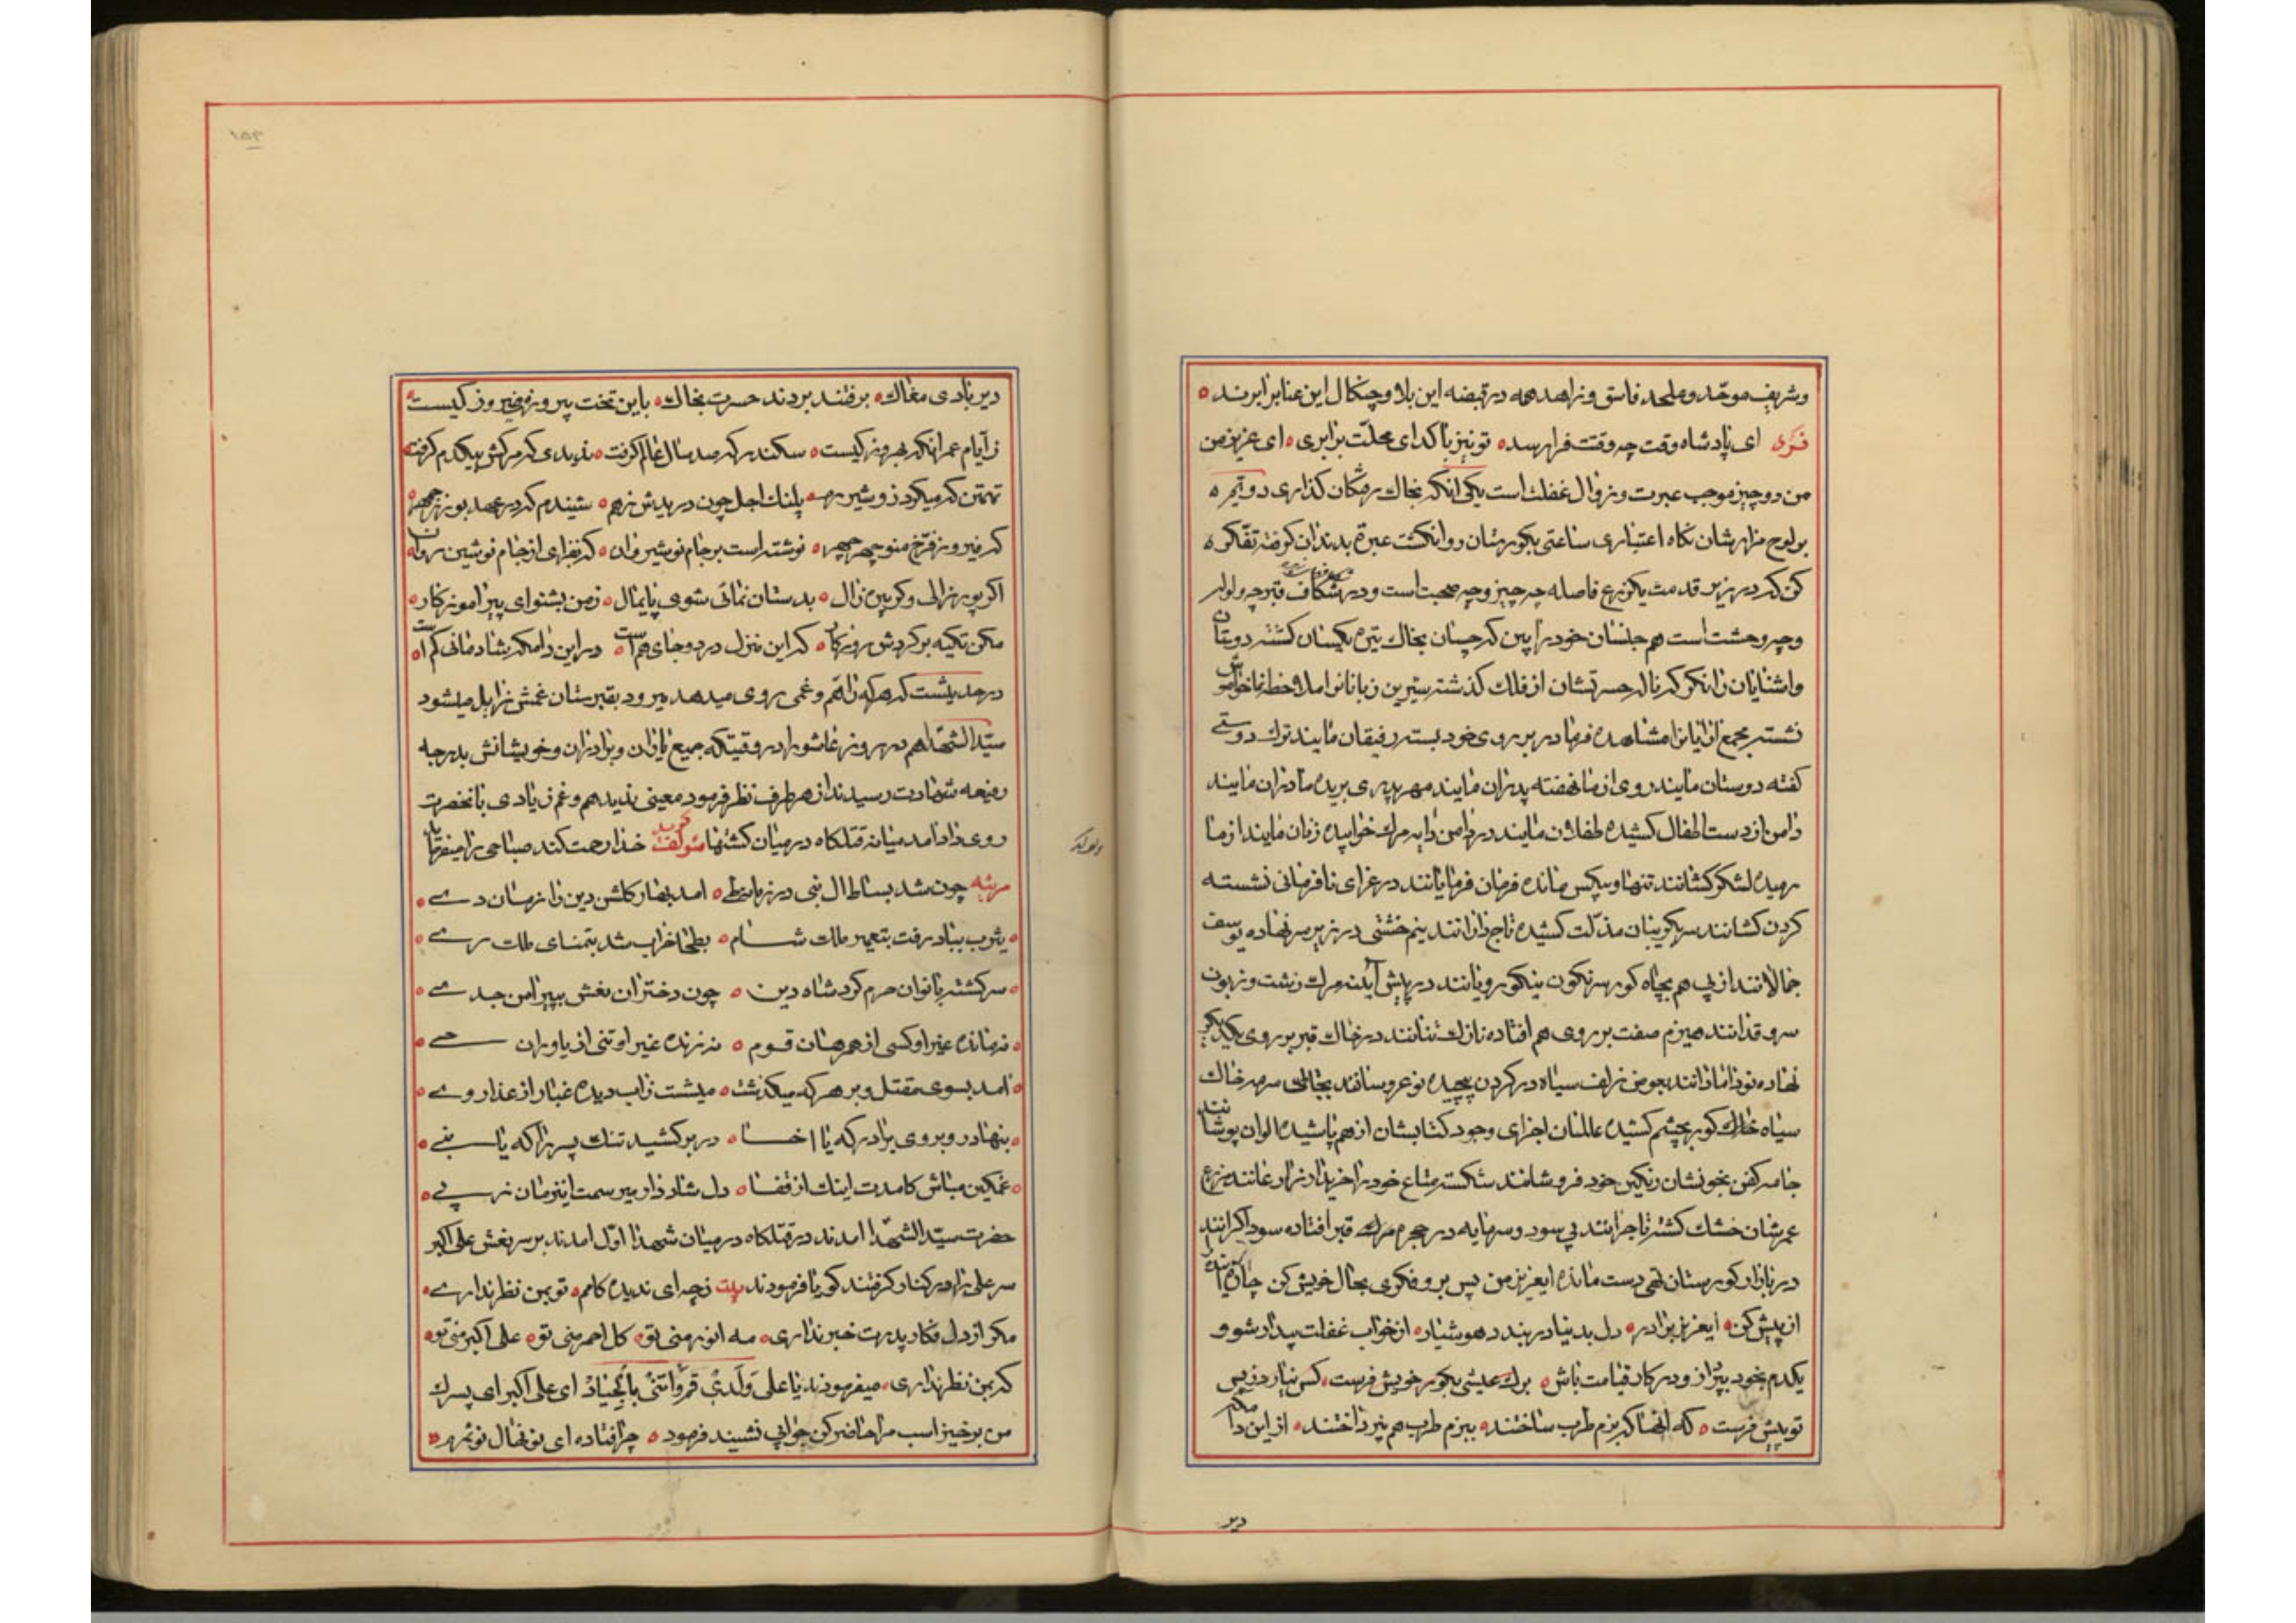 وشریف موحّد و ملحد فاسق و زاهد همه در قبضه این بلا و چنکال این عنا برابرند
فکری ای پادشاه وقت چه وقتت فرا رسد تو نیز با کدای محلّت برابری ای عزیز من
من دو چیز موجب عبرت و زوال غفلت است یکی انکه بخاك رمکان کذاری دو تیره
بر لوح مزارشان نکاه اعتباری ساعتی بکورستان رو انکشت عبرة بدندان کرفته تفکّر
کن که در زیر قدمت یکوزع فاصله چه چیز و چه صحبت است و در شکاف قبر چه ولوله
وچه وحشت است هم جلسان خود را ببین که چسان بخاك تیره یکسان کشته دوستان
و اشنایان را نکر که ناله حسرتشان از فلك کذشته شیرین زبانانرا ملاحظه نما خاموش
نشسته مجمع ارایانرا مشاهده فرما در بر روی خود بسته رفیقان مایند ترك دوستی
کفته دوستان مایند روی از ما نهفته پدران مایند مهر پدری بریده مادران مایند
دامن از دست اطفال کشیده طفلان مایند در دامن دایه مرك خوابیده زنان مایند از ما
رمیده لشکر کشانند تنها و بیکس مانده فرمان فرمایانند در عزای نافرمانی نشسته
کردن کشانند سر بکریبان مذلّت کشیده تاج دارانند نیم خشتی در زیر سر نهاده یوسف
جمالانند از پی هم بچاه کور سرنکون نیکو رویانند در پیش آینه مرك زشت و زبون
سرو قدانند هیزم صفت بر روی هم افتاده نازك تنانند در خاك قبر بر روی یکدیکر
نهاده نو دامادانند بعوض زلف سیاه در کردن پیچیده نو عروسانند بجای سرمه خاك
سیاه خاك کور بچشم کشیده عالمان اجزای وجود کتابشان از هم پاشیده الوان پوشانند
جامه کفن بخونشان رنکین خود فروشانند شکسته متاع خود را خریدار زارعانند مزرع
عمرشان خشك کشته تاجرانند بی سود و سرمایه در حجره مرك قبر افتاده سوداکرانند
در بازار کورستان تهی دست مانده ایعزیز من پس برو فکری بحال خویش کن چاره آینده را
از پیش کن ایعزیز برادر دل بدنیا در نبندد هوشیار از خواب غفلت بیدار شو و
یکدم بخود بپرداز و در کار قیامت باش برك عیشی بکور خویش فرست کس نیارد ز پس
تو پیش فرست که انها که بزم طرب ساختند ببزم طرب هم نپرداختند از این دامکه
دیر
۱۵۲
دیر نادی مغاك برفتند بردند حسرت بخاك باین تخت پیروزه فیروز کیست
ز آیام عمر انکه بهروز کیست سکندر که صد سال عالم کرفت ندیدی که مرکش بیکدم کرفت
تهمتن که میکرد زو شیر رم پلنك اجل چون دریدش ز هم شنیدم که در عهد بوزرجمهر
که فیروز فرّخ منوچهر چهر نوشته است بر جام نوشیروان که نفزای از جام نوشین روان
اکر پور زالی وکر پیره زال بدستان نمانی شوی پایمال ز من بشنو ای پیر اموزکار
مکن تکیه بر کردش روزکار که این منزل درد و جای غم است در این دامکه شادمانی کم است
در حدیثست که هرکه را همّ و غمی روی میدهد میرود بقبرستان غمش زایل میشود
سیّد الشهدا هم در روز عاشورا در وقتیکه جمیع یاران و برادران و خویشانش بدرجه
رفیعه شهادت رسیدند از هر طرف نظر فرمود معینی ندید هم و غم زیادی بانحضرت
روی داد امد میانه قتلکاه در میان کشتها مؤلف کوید خدا رحمت کند صباحی را میفرماید
مرثیه چون شد بساط ال نبی در زمانه طی امد بهار کلشن دین را زمان دے
یثرب بباد رفت بتعمیر ملك شام بطحا خراب شد بتمنای ملك رے
سرکشته بانوان حرم کرد شاه دین چون دختران نعش بپیرامن جدے
نه مانده غیر او کسی از همرهان قوم نه زنده غیر او تنی از یاوران حے
امد بسوی مقتل و بر هر که میکذشت میشست ز اب دیده غبار از عذار وے
بنهاد رو بروی برادر که یا اخا در بر کشید تنك پسر را که یا بنے
غمکین مباش کامدت اینك از قفا دل شاد دار میرسمت اینزمان ز پے
حضرت سیّد الشهدا امدند در قتلکاه در میان شهدا اوّل امدند بر سر نعش علی اکبر
سر علی را در کنار کرفتند کویا فرمودند بیت ز چه ای ندیده کامم تو بمن نظر ندارے
مکر از دل فکار پدرت خبر نداری مه انور منی تو کل احمر منی تو علی اکبر منی تو
که بمن نظر نداری میفرمودند یا علی وَلَدی ای علی اکبر ای پسرك
من برخیز اسب مرا حاضر کن جوابی نشنید فرمود چرا افتاده ای نونهال نوثمرم